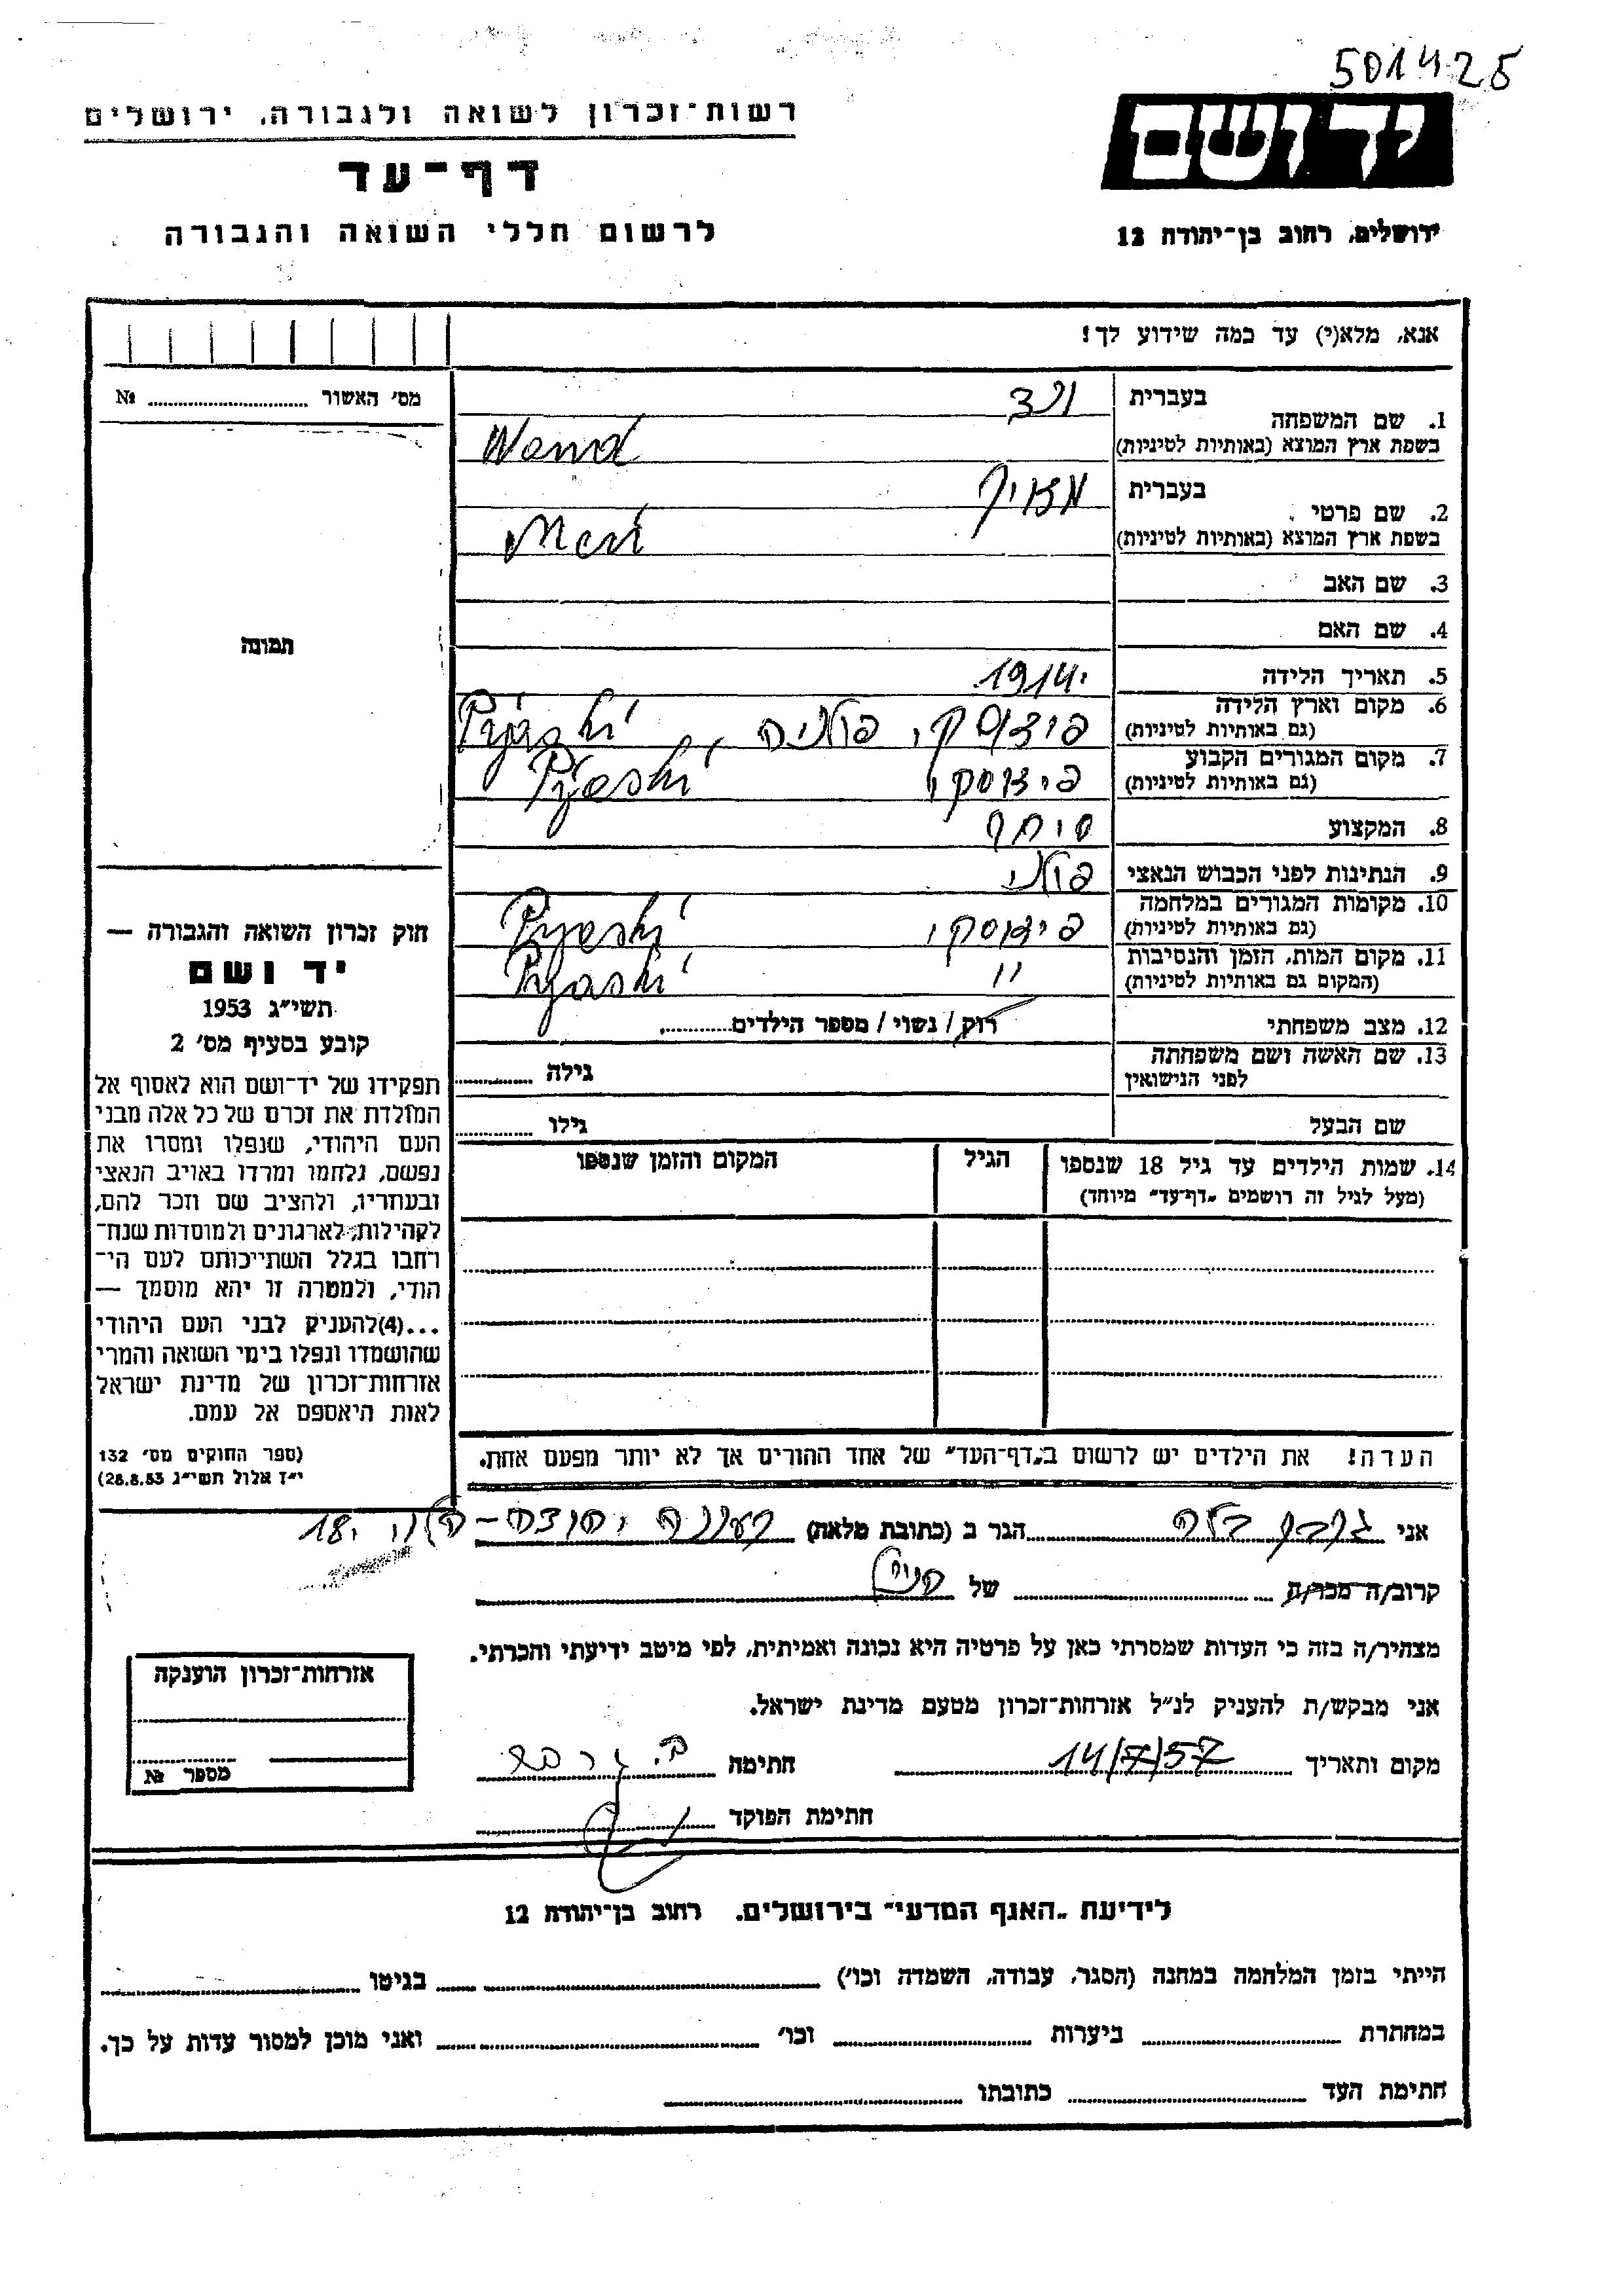 501425
רשות-זכרון לשואה ולגבורה, ירושלים
יד ושם
דף-עד
לרשום חללי השואה והגבורה
ירושלים, רחוב בן-יהודה 12
אנא, מלא(י) עד כמה שידוע לך!
מס׳ האשור № 
1. שם המשפחה
בעברית
בשפת ארץ המוצא (באותיות לטיניות) Wand
2. שם פרטי
בעברית
בשפת ארץ המוצא (באותיות לטיניות)
3. שם האב
4. שם האם
5. תאריך הלידה 1914
6. מקום וארץ הלידה
(גם באותיות לטיניות) פולניה
7. מקום המגורים הקבוע
(גם באותיות לטיניות)
8. המקצוע סוחר
9. הנתינות לפני הכבוש הנאצי פולני
10. מקומות המגורים במלחמה
(גם באותיות לטיניות)
11. מקום המות, הזמן והנסיבות
(המקום גם באותיות לטיניות) "
12. מצב משפחתי רוק / נשוי / מספר הילדים
13. שם האשה ושם משפחתה
לפני הנישואין גילה
שם הבעל גילו
14. שמות הילדים עד גיל 18 שנספו
(מעל לגיל זה רושמים „דף-עד" מיוחד)
הגיל
המקום והזמן שנספו
הערה! את הילדים יש לרשום ב„דף-העד" של אחד ההורים אך לא יותר מפעם אחת.
תמונה
חוק זכרון השואה והגבורה —
יד ושם
תשי״ג 1953
קובע בסעיף מס׳ 2
תפקידו של יד-ושם הוא לאסוף אל
המולדת את זכרם של כל אלה מבני
העם היהודי, שנפלו ומסרו את
נפשם, נלחמו ומרדו באויב הנאצי
ובעוזריו, ולהציב שם וזכר להם,
לקהילות, לארגונים ולמוסדות שנח-
רבו בגלל השתייכותם לעם הי-
הודי, ולמטרה זו יהא מוסמך —
...(4)להעניק לבני העם היהודי
שהושמדו ונפלו בימי השואה והמרי
אזרחות-זכרון של מדינת ישראל
לאות היאספם אל עמם.
(ספר החוקים מס׳ 132
י״ז אלול תשי״ג 28.8.53)
אני הגר ב (כתובת מלאה) רעננה 18
קרוב/ה מכר/ה של
מצהיר/ה בזה כי העדות שמסרתי כאן על פרטיה היא נכונה ואמיתית, לפי מיטב ידיעתי והכרתי.
אני מבקש/ת להעניק לנ״ל אזרחות-זכרון מטעם מדינת ישראל.
מקום ותאריך 14/7/57 חתימה
חתימת הפוקד
אזרחות-זכרון הוענקה
מספר №
לידיעת „האגף המדעי" בירושלים, רחוב בן-יהודה 12
הייתי בזמן המלחמה במחנה (הסגר, עבודה, השמדה וכו׳) בגיטו
במחתרת ביערות וכו׳ ואני מוכן למסור עדות על כך.
חתימת העד כתובתו